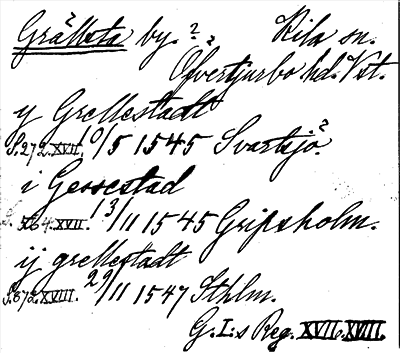 Grällsta by. ? Kila sn.
Öfvertjurbo hd. Vst.
y Grellestadt
S. 272. XVII. 10/5 1545 Svartsjö.
i Gerrestad
S. 264. XVII. 13/11 1545 Gripsholm.
ij grellestadt
S. 372. XVIII. 29/11 1547 Sthlm.
G. I:s Reg. XVII. XVIII.